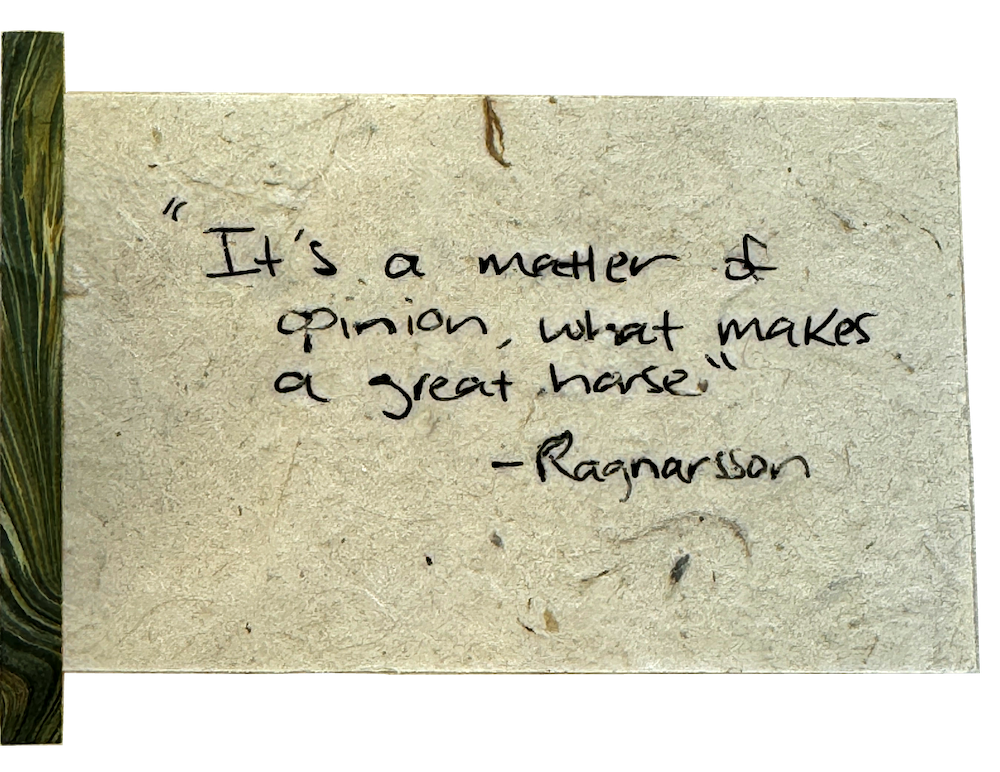 "It's a matter of
opinion, what makes
a great horse"
-Ragnarsson